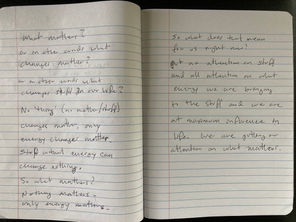 What matters?
or in other words what
changes matter?
in other words what
changes stuff in our life?
No thing (no matter/stuff)
changes matter, only
energy changes matter.
Stuff without energy can
change nothing.
So what matters?
Nothing matters.
only energy matters.
So what does that mean
for us right now?
Put no attention on stuff
and all attention on what
energy we are bringing
to the stuff and we are
at maximum influence in
life. We are putting our
attention on what matters.